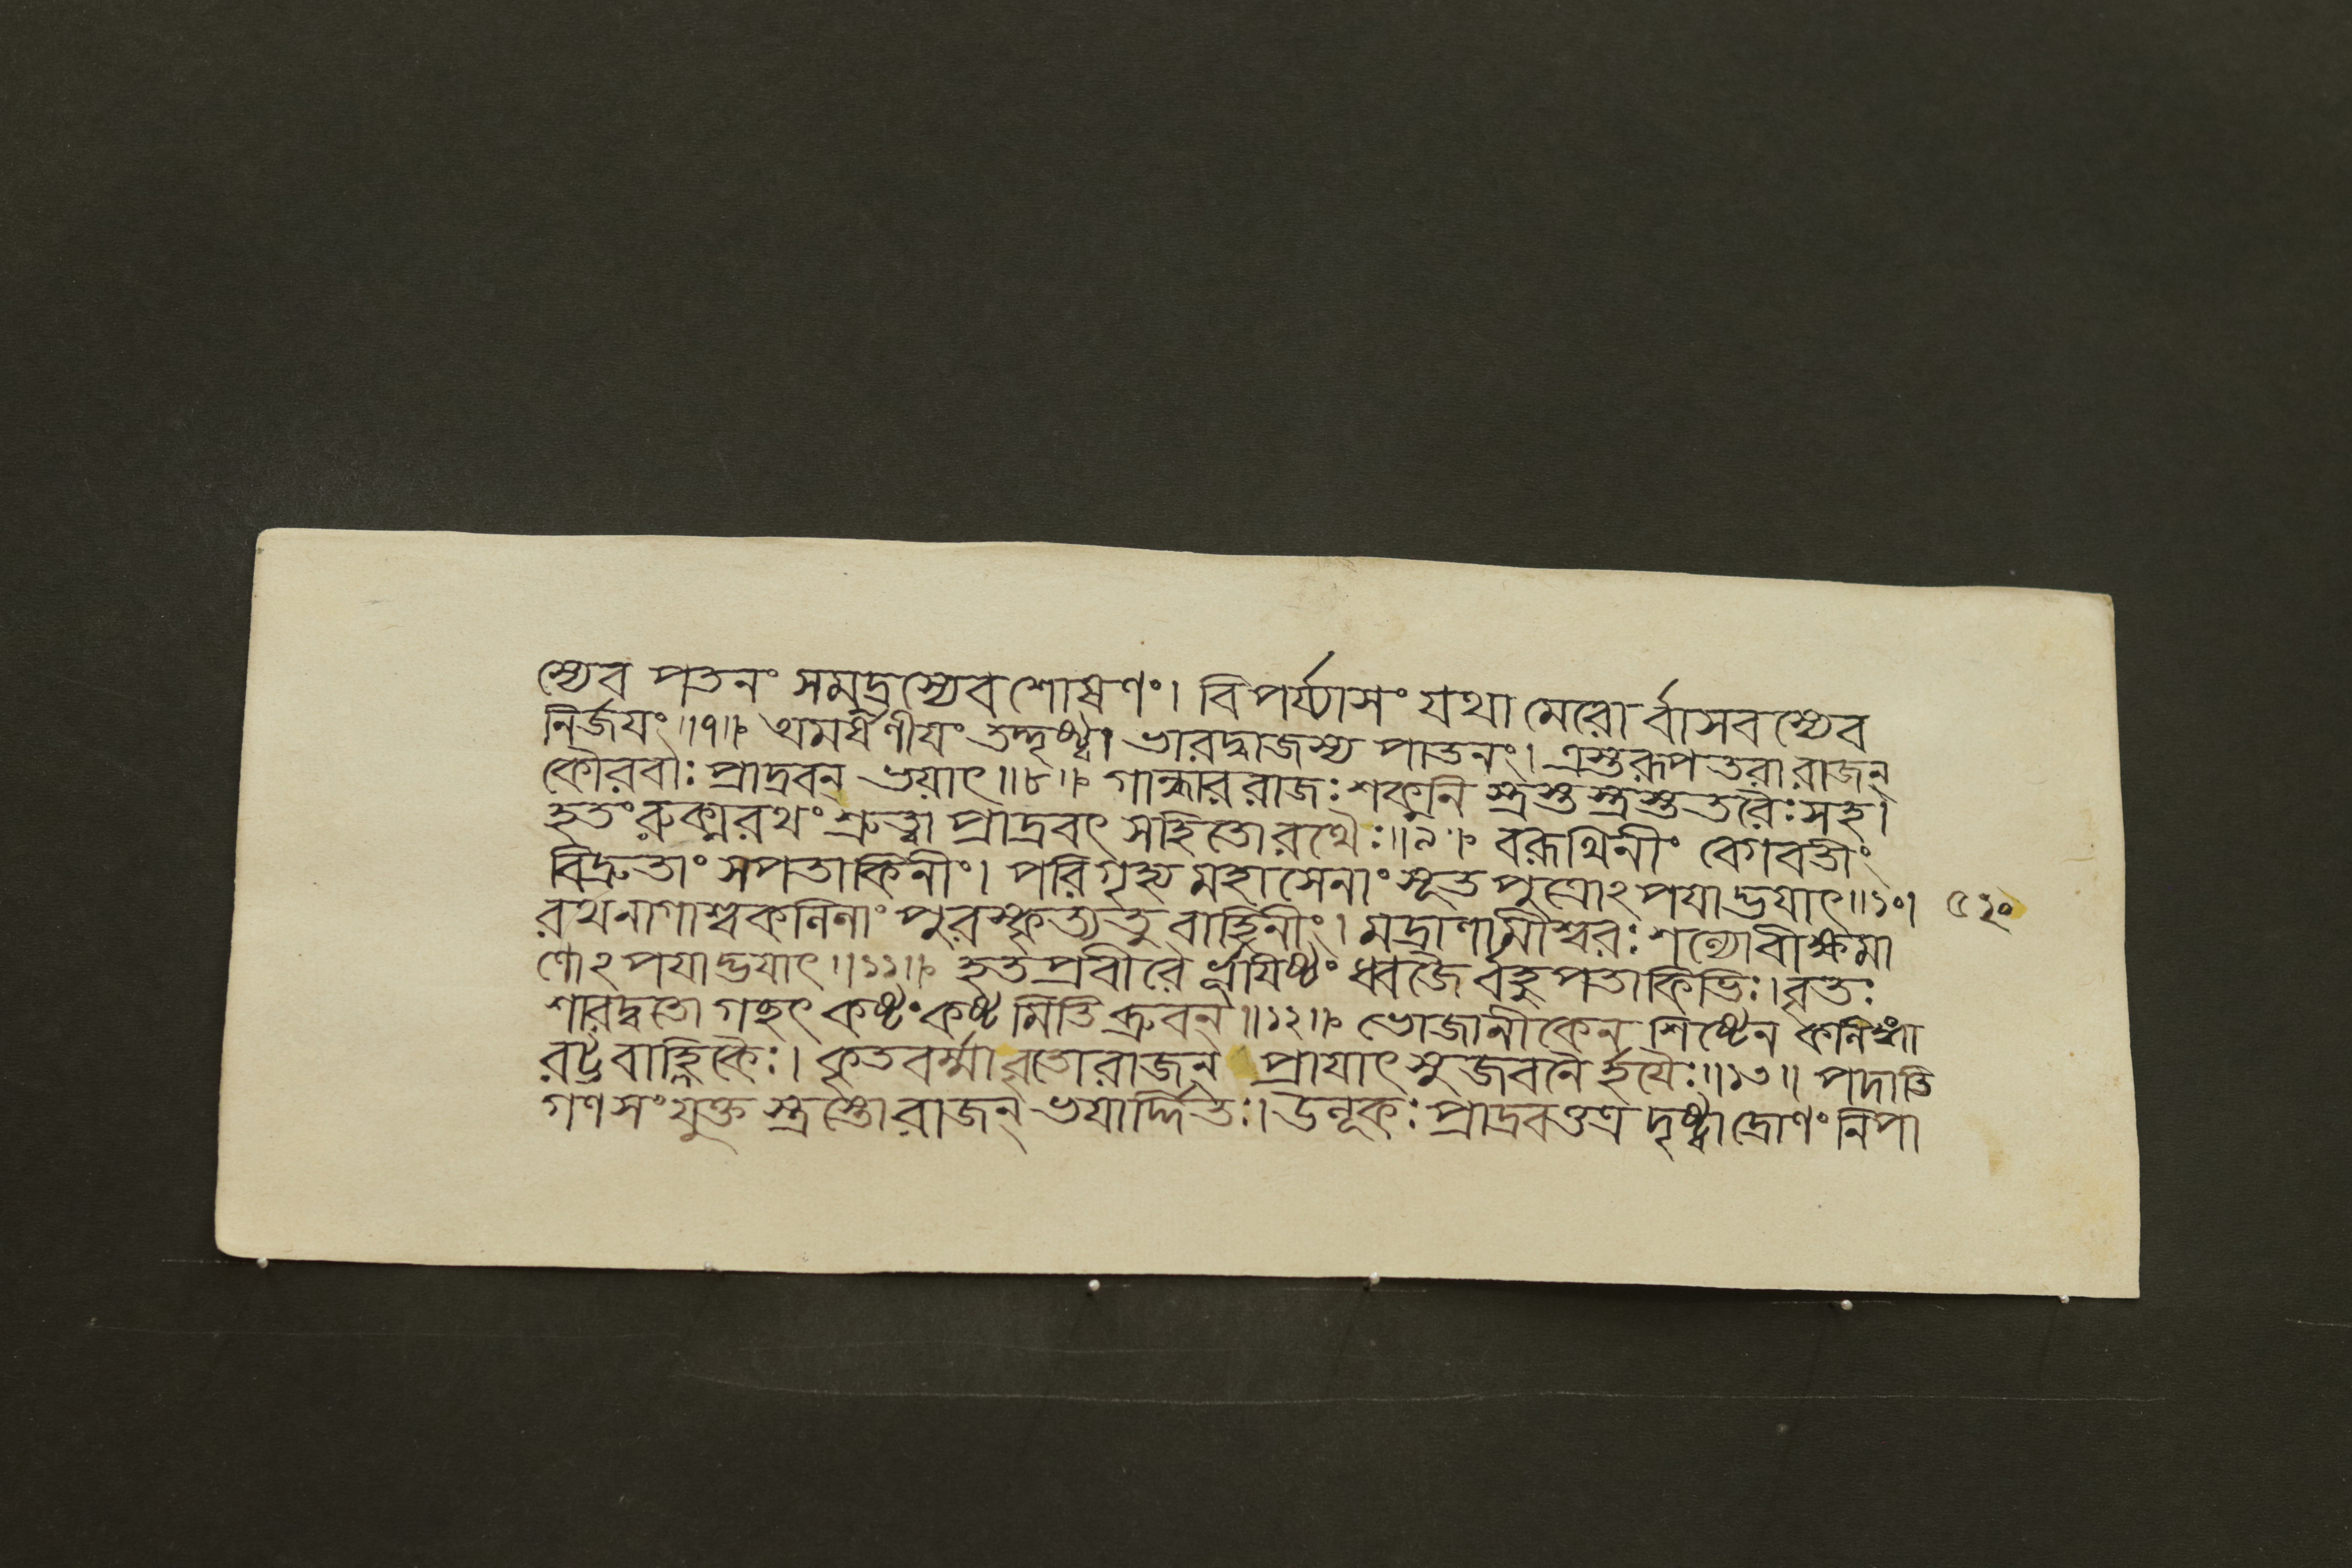 স্যেব পতনং সমুদ্রস্যেব শোষণং। বিপর্য্যাসং যথা মেরোর্ব্বাসবস্যেব
নির্জয়ং॥৭॥ অমর্ষণীয়ং তদ্দৃষ্ট্বা ভারদ্বাজস্য পাতনং। ত্রস্তরূপতরা রাজন্
কৌরবাঃ প্রাদ্রবন্ ভয়াৎ॥৮॥ গান্ধাররাজঃ শকুনি স্ত্রস্তস্ত্রস্ততরৈঃ সহ।
হতং রুক্মরথং শ্রুত্বা প্রাদ্রবৎ সহিতো রথৈঃ॥৯॥ বরূথিনীং বেগবতীং
বিদ্রুতাং সপতাকিনীং। পরিগৃহ্য মহাসেনাং সূতপুত্রোঽপযাদ্ভয়াৎ॥১০।
রথনাগাশ্বকলিলাং পুরস্কৃত্য তু বাহিনীং। মদ্রাণামীশ্বরঃ শল্যো বীক্ষমা
ণোঽপযাদ্ভয়াৎ॥১১॥ হতপ্রবীরৈর্ভূয়িষ্ঠং ধ্বজৈর্বহুপতাকিভিঃ। বৃতঃ
শারদ্বতো গচ্ছৎ কষ্টং কষ্টমিতি ব্রুবন্॥১২॥ ভোজানীকেন শিষ্টেন কলিঙ্গা
রট্টবাহ্লিকৈঃ। কৃতবর্ম্মা বৃতো রাজন্ প্রায়াৎ সুজবনৈর্হয়ৈঃ॥১৩॥ পদাতি
গণসংযুক্ত স্ত্রস্তো রাজন্ ভয়ার্দ্দিতঃ। উলূকঃ প্রাদ্রবত্তত্র দৃষ্ট্বা দ্রোণং নিপা
৫২০